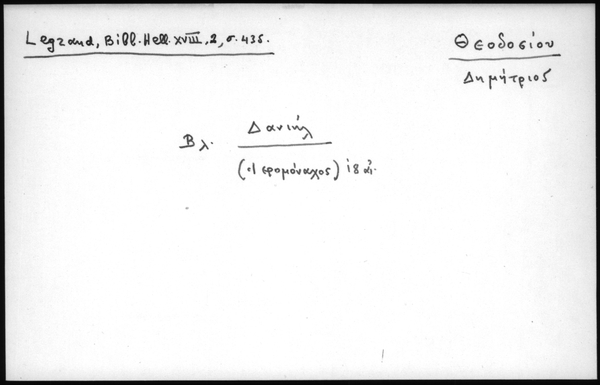 Legrand, Bibl. Hell. XVIII, 2, σ. 435.
Θεοδοσίου
Δημήτριος
Βλ. Δανιήλ
(Ἱερομόναχος) 18 αἰ.